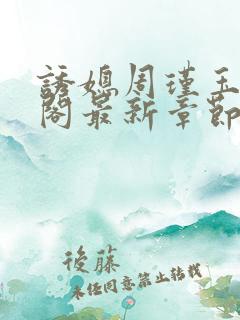 誘媳周瑾玉
閣最新章節
後藤
未经同意禁止转载